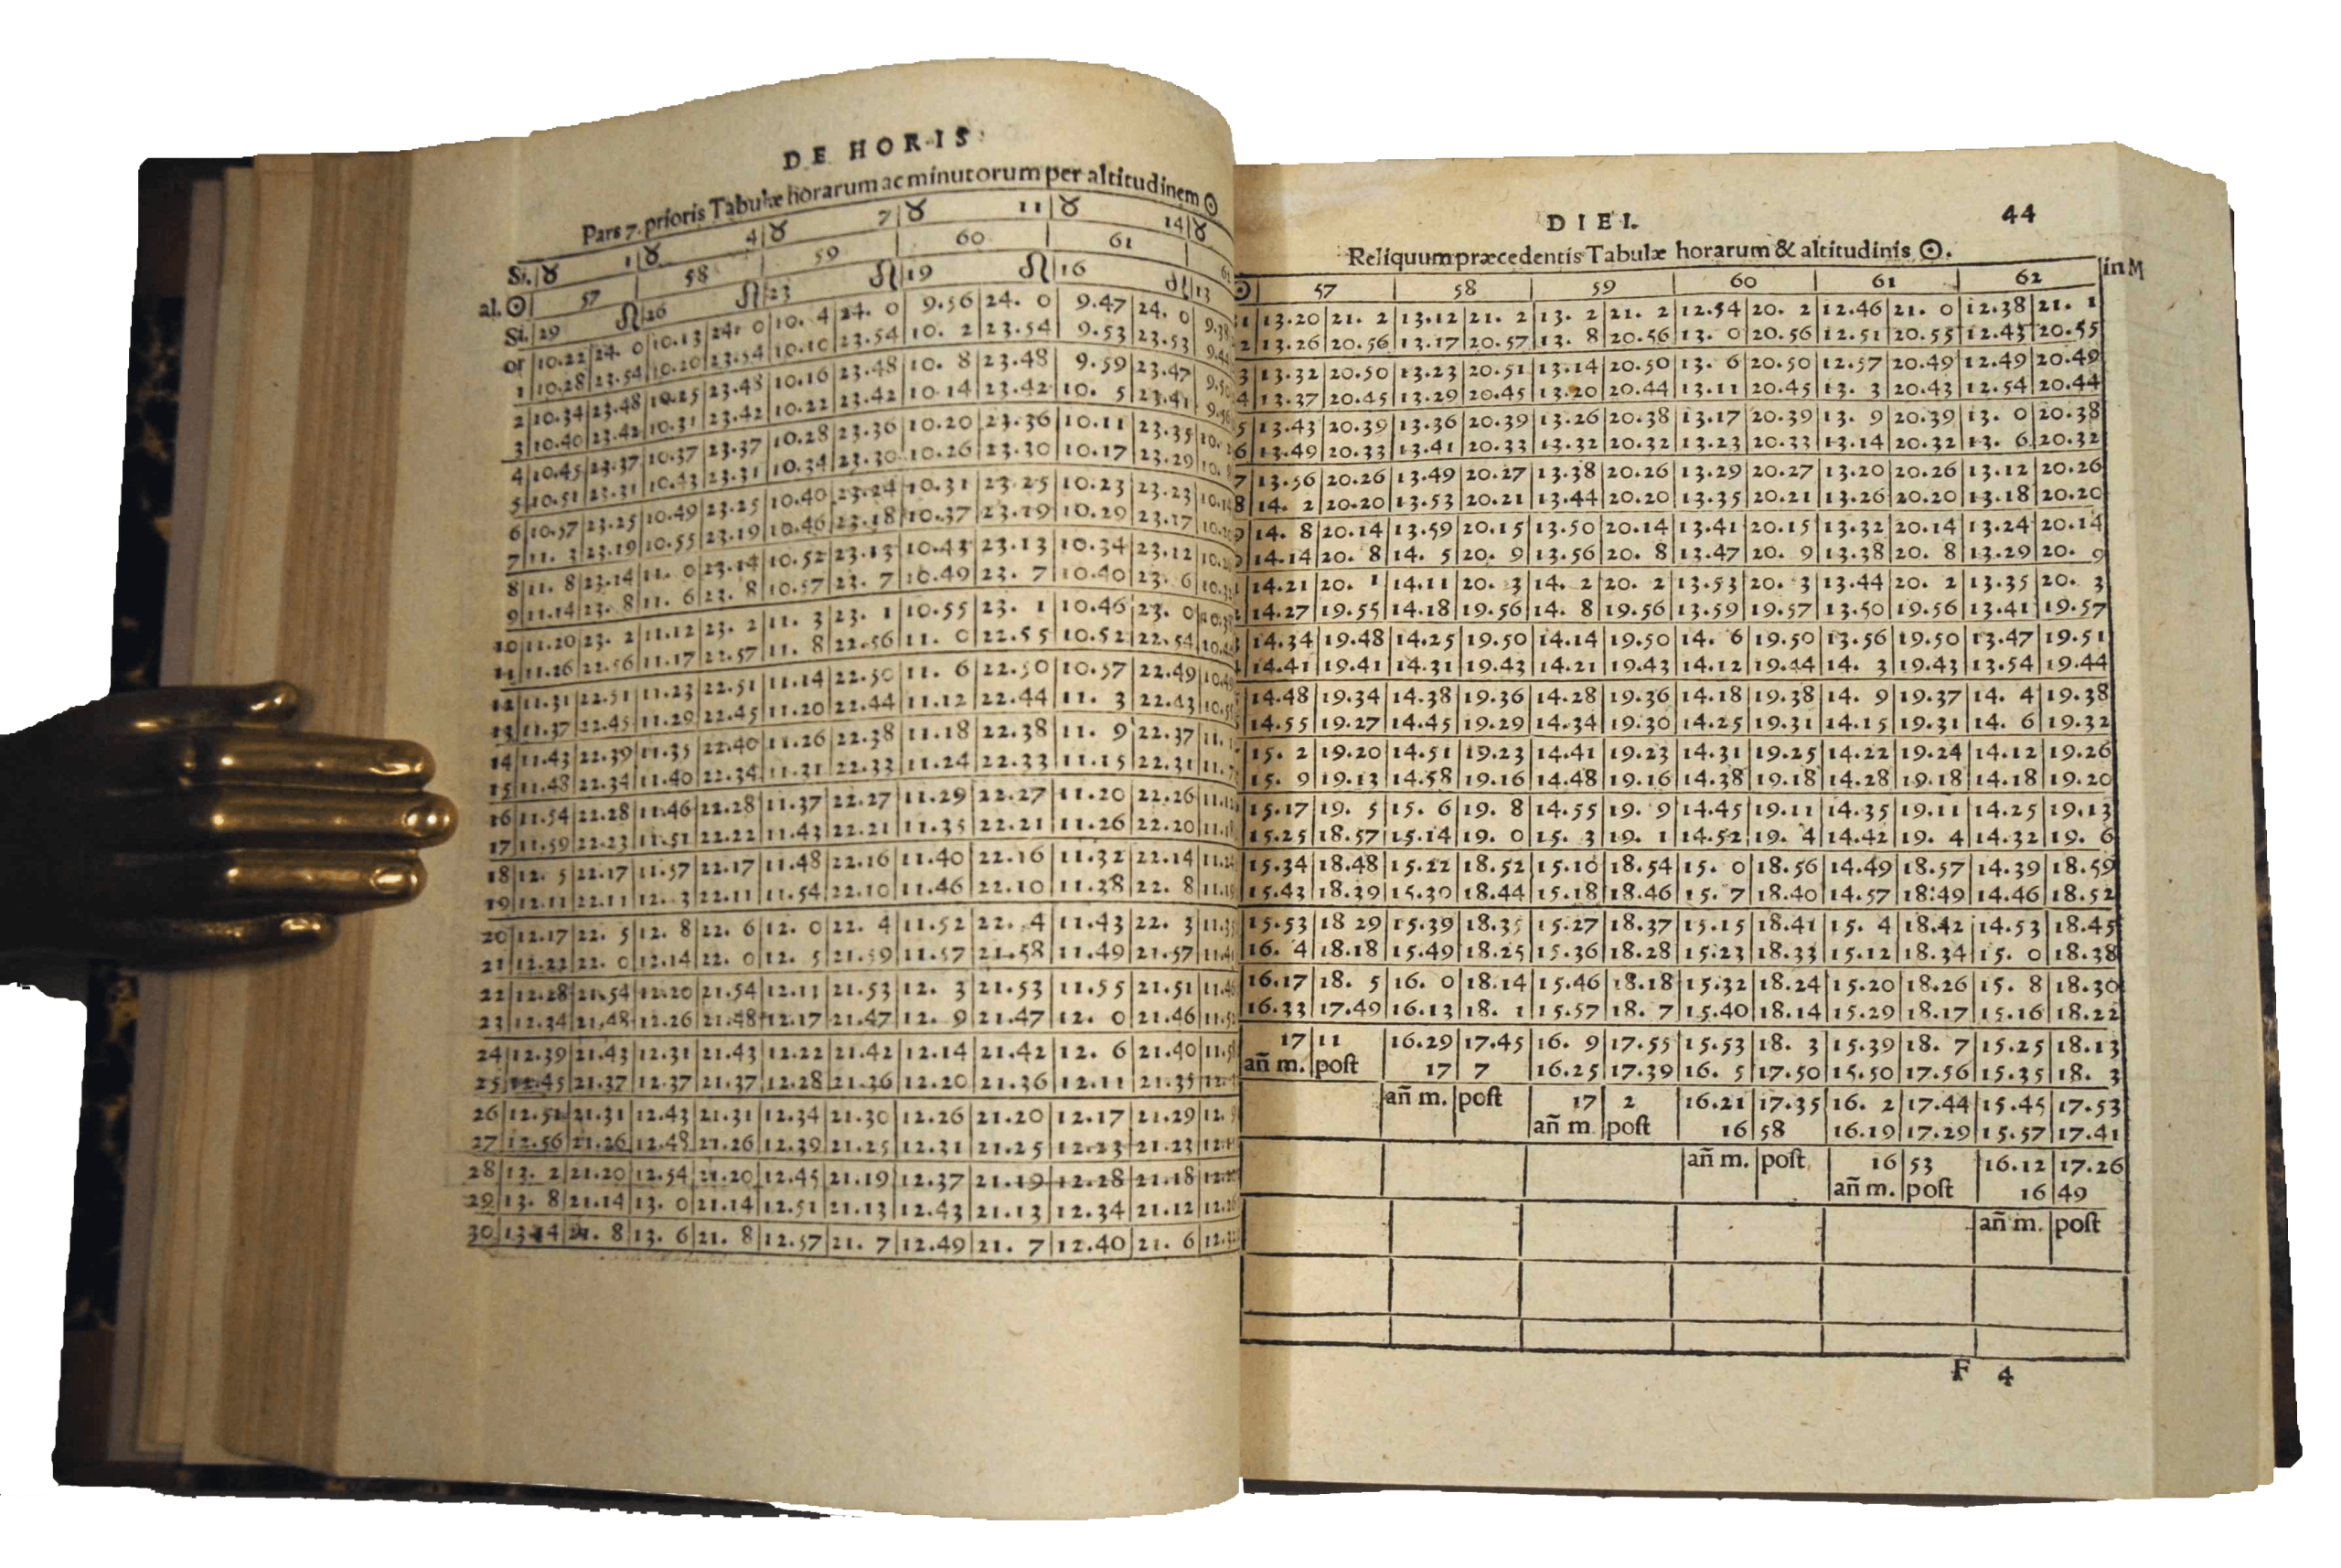 DE HORIS
Pars 7. prioris Tabulæ horarum ac minutorum per altitudinem ☉
Si. ♉ 1 ♉ 4 ♉ 7 ♉ 11 ♉ 14 ♉
al. ☉ 57 58 59 60 61
Si. 29 ♌ 26 ♌ 23 ♌ 19 ♌ 16 ♌ 13
or 10.22 24. 0 10.13 24. 0 10. 4 24. 0 9.56 24. 0 9.47 24. 0
1 10.28 23.54 10.20 23.54 10.10 23.54 10. 2 23.54 9.53 23.53
2 10.34 23.48 10.25 23.48 10.16 23.48 10. 8 23.48 9.59 23.47
3 10.40 23.42 10.31 23.42 10.22 23.42 10.14 23.42 10. 5 23.41
4 10.45 23.37 10.37 23.37 10.28 23.36 10.20 23.36 10.11 23.35
5 10.51 23.31 10.43 23.31 10.34 23.30 10.26 23.30 10.17 23.29
6 10.57 23.25 10.49 23.25 10.40 23.24 10.31 23.25 10.23 23.23
7 11. 3 23.19 10.55 23.19 10.46 23.18 10.37 23.19 10.29 23.17
8 11. 8 23.14 11. 0 23.14 10.52 23.13 10.43 23.13 10.34 23.12
9 11.14 23. 8 11. 6 23. 8 10.57 23. 7 10.49 23. 7 10.40 23. 6
10 11.20 23. 2 11.12 23. 2 11. 3 23. 1 10.55 23. 1 10.46 23. 0
11 11.26 22.56 11.17 22.57 11. 8 22.56 11. 0 22.55 10.52 22.54
12 11.31 22.51 11.23 22.51 11.14 22.50 11. 6 22.50 10.57 22.49
13 11.37 22.45 11.29 22.45 11.20 22.44 11.12 22.44 11. 3 22.43
14 11.43 22.39 11.35 22.40 11.26 22.38 11.18 22.38 11. 9 22.37
15 11.48 22.34 11.40 22.34 11.31 22.33 11.24 22.33 11.15 22.31
16 11.54 22.28 11.46 22.28 11.37 22.27 11.29 22.27 11.20 22.26
17 11.59 22.23 11.51 22.22 11.43 22.21 11.35 22.21 11.26 22.20
18 12. 5 22.17 11.57 22.17 11.48 22.16 11.40 22.16 11.32 22.14
19 12.11 22.11 12. 3 22.11 11.54 22.10 11.46 22.10 11.38 22. 8
20 12.17 22. 5 12. 8 22. 6 12. 0 22. 4 11.52 22. 4 11.43 22. 3
21 12.22 22. 0 12.14 22. 0 12. 5 21.59 11.57 21.58 11.49 21.57
22 12.28 21.54 12.20 21.54 12.11 21.53 12. 3 21.53 11.55 21.51
23 12.34 21.48 12.26 21.48 12.17 21.47 12. 9 21.47 12. 0 21.46
24 12.39 21.43 12.31 21.43 12.22 21.42 12.14 21.42 12. 6 21.40
25 12.45 21.37 12.37 21.37 12.28 21.36 12.20 21.36 12.11 21.35
26 12.51 21.31 12.43 21.31 12.34 21.30 12.26 21.20 12.17 21.29
27 12.56 21.26 12.48 21.26 12.39 21.25 12.31 21.25 12.23 21.23
28 13. 2 21.20 12.54 21.20 12.45 21.19 12.37 21.19 12.28 21.18
29 13. 8 21.14 13. 0 21.14 12.51 21.13 12.43 21.13 12.34 21.12
30 13.14 21. 8 13. 6 21. 8 12.57 21. 7 12.49 21. 7 12.40 21. 6
DIEI. 44
Reliquum præcedentis Tabulæ horarum & altitudinis ☉.
☉ 57 58 59 60 61 62 in M
13.20 21. 2 13.12 21. 2 13. 2 21. 2 12.54 20. 2 12.46 21. 0 12.38 21. 1
13.26 20.56 13.17 20.57 13. 8 20.56 13. 0 20.56 12.51 20.55 12.43 20.55
13.32 20.50 13.23 20.51 13.14 20.50 13. 6 20.50 12.57 20.49 12.49 20.49
13.37 20.45 13.29 20.45 13.20 20.44 13.11 20.45 13. 3 20.43 12.54 20.44
13.43 20.39 13.36 20.39 13.26 20.38 13.17 20.39 13. 9 20.39 13. 0 20.38
13.49 20.33 13.41 20.33 13.32 20.32 13.23 20.33 13.14 20.32 13. 6 20.32
13.56 20.26 13.49 20.27 13.38 20.26 13.29 20.27 13.20 20.26 13.12 20.26
14. 2 20.20 13.53 20.21 13.44 20.20 13.35 20.21 13.26 20.20 13.18 20.20
14. 8 20.14 13.59 20.15 13.50 20.14 13.41 20.15 13.32 20.14 13.24 20.14
14.14 20. 8 14. 5 20. 9 13.56 20. 8 13.47 20. 9 13.38 20. 8 13.29 20. 9
14.21 20. 1 14.11 20. 3 14. 2 20. 2 13.53 20. 3 13.44 20. 2 13.35 20. 3
14.27 19.55 14.18 19.56 14. 8 19.56 13.59 19.57 13.50 19.56 13.41 19.57
14.34 19.48 14.25 19.50 14.14 19.50 14. 6 19.50 13.56 19.50 13.47 19.51
14.41 19.41 14.31 19.43 14.21 19.43 14.12 19.44 14. 3 19.43 13.54 19.44
14.48 19.34 14.38 19.36 14.28 19.36 14.18 19.38 14. 9 19.37 14. 4 19.38
14.55 19.27 14.45 19.29 14.34 19.30 14.25 19.31 14.15 19.31 14. 6 19.32
15. 2 19.20 14.51 19.23 14.41 19.23 14.31 19.25 14.22 19.24 14.12 19.26
15. 9 19.13 14.58 19.16 14.48 19.16 14.38 19.18 14.28 19.18 14.18 19.20
15.17 19. 5 15. 6 19. 8 14.55 19. 9 14.45 19.11 14.35 19.11 14.25 19.13
15.25 18.57 15.14 19. 0 15. 3 19. 1 14.52 19. 4 14.42 19. 4 14.32 19. 6
15.34 18.48 15.22 18.52 15.10 18.54 15. 0 18.56 14.49 18.57 14.39 18.59
15.43 18.39 15.30 18.44 15.18 18.46 15. 7 18.40 14.57 18:49 14.46 18.52
15.53 18 29 15.39 18.35 15.27 18.37 15.15 18.41 15. 4 18.42 14.53 18.45
16. 4 18.18 15.49 18.25 15.36 18.28 15.23 18.33 15.12 18.34 15. 0 18.38
16.17 18. 5 16. 0 18.14 15.46 18.18 15.32 18.24 15.20 18.26 15. 8 18.30
16.33 17.49 16.13 18. 1 15.57 18. 7 15.40 18.14 15.29 18.17 15.16 18.22
17 11 16.29 17.45 16. 9 17.55 15.53 18. 3 15.39 18. 7 15.25 18.13
añ m. poſt 17 7 16.25 17.39 16. 5 17.50 15.50 17.56 15.35 18. 3
añ m. poſt 17 2 16.21 17.35 16. 2 17.44 15.45 17.53
añ m poſt 16 58 16.19 17.29 15.57 17.41
añ m. poſt 16 53 16.12 17.26
añ m. poſt 16 49
añ m. poſt
F 4